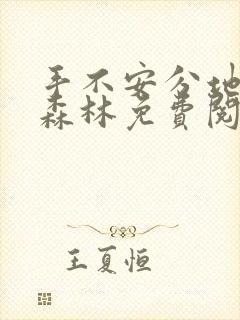 手不安分地
森林免费阅
王夏恒